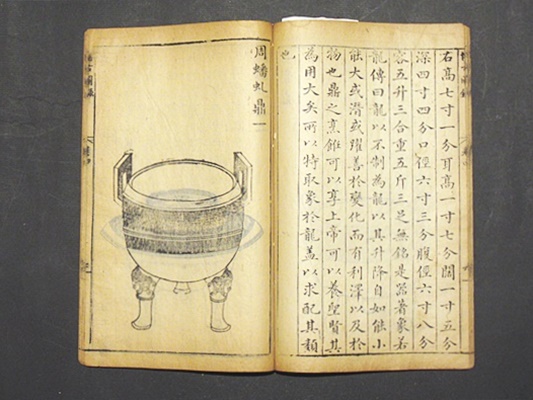 右高七寸一分耳高一寸七分闊一寸五分
深四寸四分口徑六寸三分腹徑六寸八分
容五升三合重五斤三足無銘是器著象若
龍傳曰龍以不制為龍以其升降自如能小
能大或潛或躍善於變化而有利澤以及於
物也鼎之烹餁可以享上帝可以養聖賢其
為用大矣所以特取象於龍蓋以求配其類
也
周蟠虬鼎一